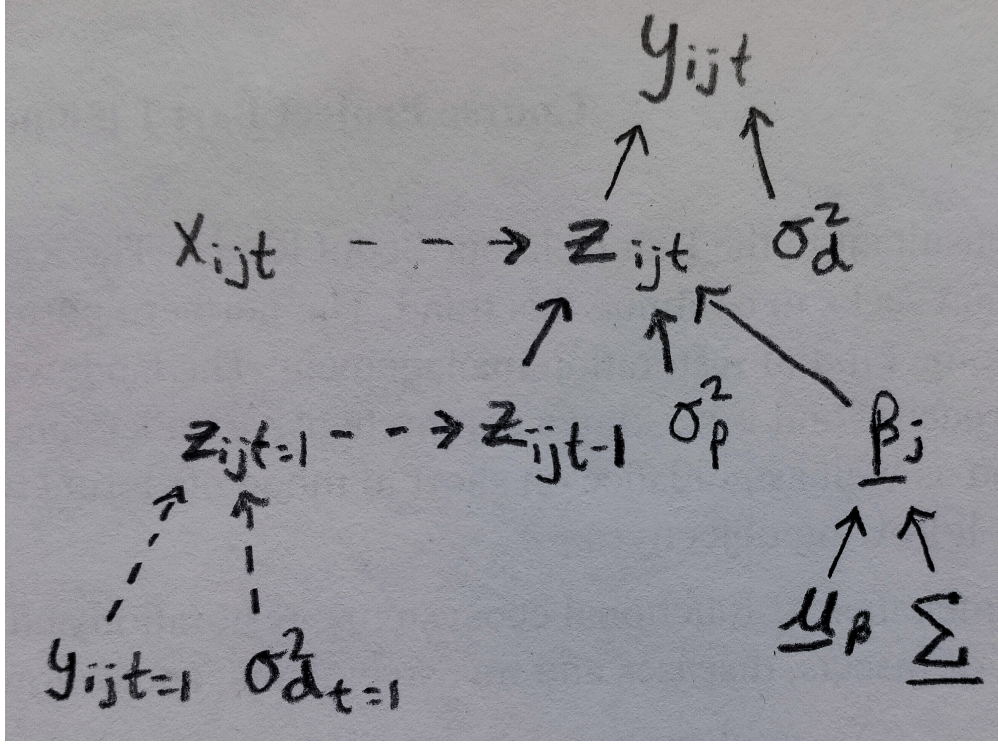 y_{ijt}
x_{ijt} z_{ijt} σ_d^2
z_{ijt=1} z_{ijt-1} σ_p^2 β_j
y_{ijt=1} σ_{d_{t=1}}^2 μ_β Σ